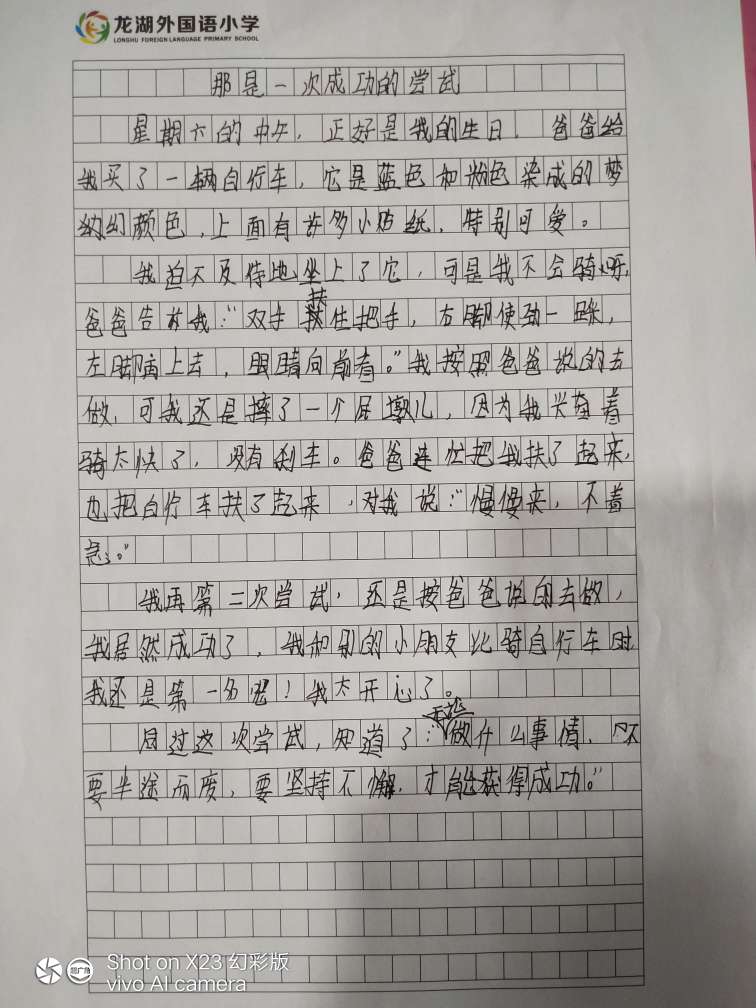 龙湖外国语小学
LONGHU FOREIGN LANGUAGE PRIMARY SCHOOL
那是一次成功的尝试
星期六的中午,正好是我的生日,爸爸给
我买了一辆自行车,它是蓝色和粉色染成的梦
幻颜色,上面有许多小贴纸,特别可爱。
我迫不及待地坐上了它,可是我不会骑呀,
爸爸告诉我:“双手扶住把手,右脚使劲一踩,
左脚上去,眼睛向前看。”我按照爸爸说的去
做,可我还是摔了一个屁墩儿,因为我光顾着
骑太快了,没有刹车。爸爸连忙把我扶了起来,
也把自行车扶了起来,对我说:“慢慢来,不着
急。”
我再第二次尝试,还是按爸爸说的去做,
我居然成功了,我和别的小朋友比骑自行车时
我还是第一名呢!我太开心了。
通过这次尝试,知道了:“无论做什么事情,不
要半途而废,要坚持不懈,才能获得成功。”
Shot on X23 幻彩版
vivo AI camera
超广角